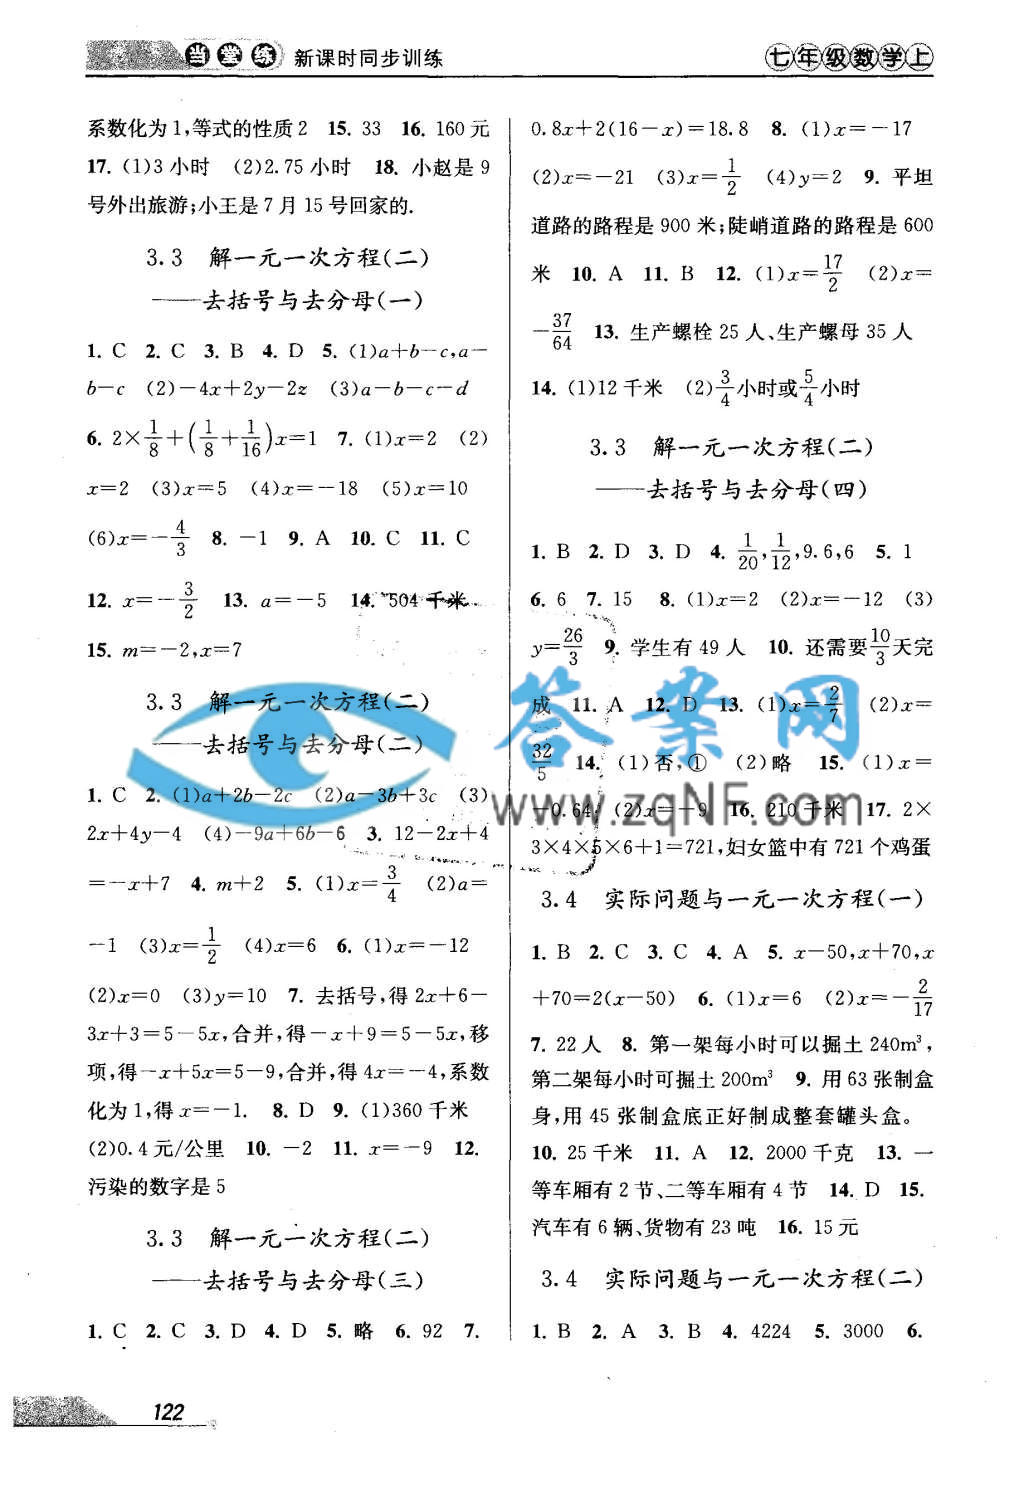 当堂练 新课时同步训练
七年级数学上
系数化为1,等式的性质2 15. 33 16. 160元
17. (1)3小时 (2)2.75小时 18. 小赵是9
号外出旅游;小王是7月15号回家的.
3.3 解一元一次方程(二)
——去括号与去分母(一)
1. C 2. C 3. B 4. D 5. (1)a+b-c,a-
b-c (2)-4x+2y-2z (3)a-b-c-d
6. 2×1/8+(1/8+1/16)x=1 7. (1)x=2 (2)
x=2 (3)x=5 (4)x=-18 (5)x=10
(6)x=-4/3 8. -1 9. A 10. C 11. C
12. x=-3/2 13. a=-5 14. 504千米
15. m=-2,x=7
3.3 解一元一次方程(二)
——去括号与去分母(二)
1. C 2. (1)a+2b-2c (2)a-3b+3c (3)
2x+4y-4 (4)-9a+6b-6 3. 12-2x+4
=-x+7 4. m+2 5. (1)x=3/4 (2)a=
-1 (3)x=1/2 (4)x=6 6. (1)x=-12
(2)x=0 (3)y=10 7. 去括号,得2x+6-
3x+3=5-5x,合并,得-x+9=5-5x,移
项,得-x+5x=5-9,合并,得4x=-4,系数
化为1,得x=-1. 8. D 9. (1)360千米
(2)0.4元/公里 10. -2 11. x=-9 12.
污染的数字是5
3.3 解一元一次方程(二)
——去括号与去分母(三)
1. C 2. C 3. D 4. D 5. 略 6. 92 7.
0.8x+2(16-x)=18.8 8. (1)x=-17
(2)x=-21 (3)x=1/2 (4)y=2 9. 平坦
道路的路程是900米;陡峭道路的路程是600
米 10. A 11. B 12. (1)x=17/2 (2)x=
-37/64 13. 生产螺栓25人、生产螺母35人
14. (1)12千米 (2)3/4小时或5/4小时
3.3 解一元一次方程(二)
——去括号与去分母(四)
1. B 2. D 3. D 4. 1/20,1/12,9.6,6 5. 1
6. 6 7. 15 8. (1)x=2 (2)x=-12 (3)
y=26/3 9. 学生有49人 10. 还需要10/3天完
成 11. A 12. D 13. (1)x=2/7 (2)x=
32/5 14. (1)否,① (2)略 15. (1)x=
-0.64 (2)x=-9 16. 210千米 17. 2×
3×4×5×6+1=721,妇女篮中有721个鸡蛋
3.4 实际问题与一元一次方程(一)
1. B 2. C 3. C 4. A 5. x-50,x+70,x
+70=2(x-50) 6. (1)x=6 (2)x=-2/17
7. 22人 8. 第一架每小时可以掘土240m³,
第二架每小时可掘土200m³ 9. 用63张制盒
身,用45张制盒底正好制成整套罐头盒。
10. 25千米 11. A 12. 2000千克 13. 一
等车厢有2节、二等车厢有4节 14. D 15.
汽车有6辆、货物有23吨 16. 15元
3.4 实际问题与一元一次方程(二)
1. B 2. A 3. B 4. 4224 5. 3000 6.
答案网
www.zqNF.com
122